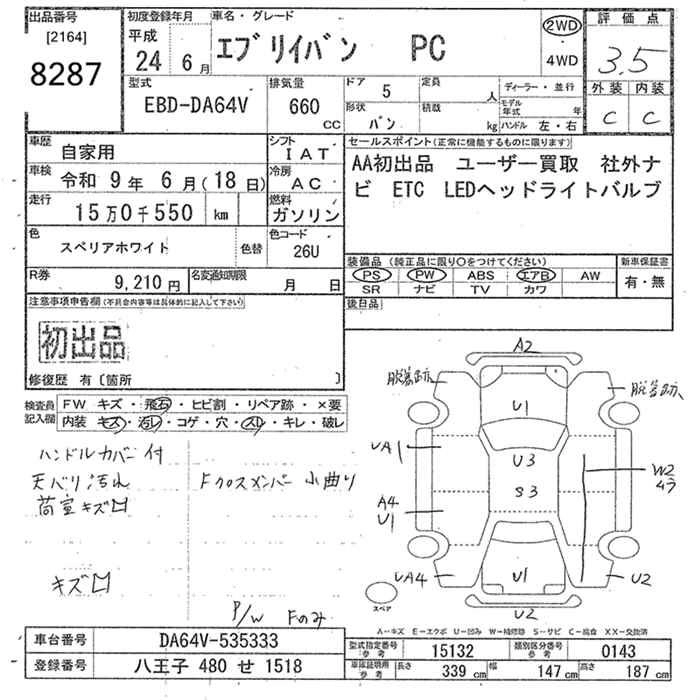 出品番号
[2164]
8287
初度登録年月
平成
24 6 月
車名・グレード
エブリイバン PC
2WD
4WD
評価点
3.5
外装 内装
C C
型式
EBD-DA64V
排気量
660
CC
ドア 5
定員 人
形状
バン
積載 kg
ディーラー・並行
モデル年式 年
ハンドル 左・右
車歴
自家用
シフト
IAT
車検 令和 9年 6月(18日)
冷房
AC
走行
15万0千550 km
燃料
ガソリン
色
スペリアホワイト
色替
色コード
26U
R券
9,210 円
名変通知期限
月 日
セールスポイント(正常に機能するものに限ります)
AA初出品 ユーザー買取 社外ナ
ビ ETC LEDヘッドライトバルブ
装備品 (純正品に限り○をつけてください)
PS PW ABS エアB AW
SR ナビ TV カワ
新車保証書
有・無
後日品
注意事項申告欄(不具合内容等は具体的に記入して下さい)
初出品
修復歴 有〔箇所 〕
検査員
記入欄
FW キズ・飛石・ヒビ割・リペア跡・×要
内装 キズ・汚レ・コゲ・穴・スレ・キレ・破レ
ハンドルカバー付
天バリ汚れ
荷室キズ凹
Fクロスメンバー小曲り
キズ凹
P/W Fのみ
A2
脱着跡
脱着跡
U1
UA1
U3
S3
W2
ムラ
A4
U1
UA4
U1
U2
U2
スペア
A-キズ E-エクボ U-凹み W-補修跡 S-サビ C-腐食 XX-交換済
車台番号 DA64V-535333
登録番号 八王子 480 せ 1518
型式指定番号
参考
15132
類別区分番号
参考
0143
車庫証明用
参考
長さ 339 cm 幅 147 cm 高さ 187 cm